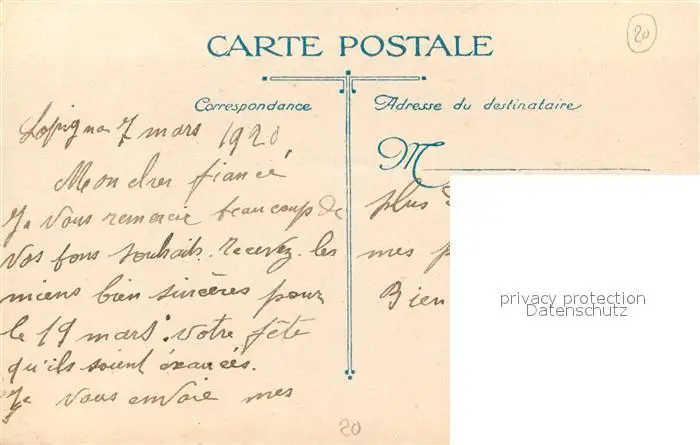 CARTE POSTALE
20
Correspondance
Adresse du destinataire
M
Lopigna 7 mars 1920
Mon cher fiancé
Je vous remercie beaucoup de
vos bons souhaits. recevez. les
miens bien sincères pour
le 19 mars. votre fête
qu'ils soient éxaucés.
Je vous envoie mes
plus
mes
Bien
privacy protection
Datenschutz
20